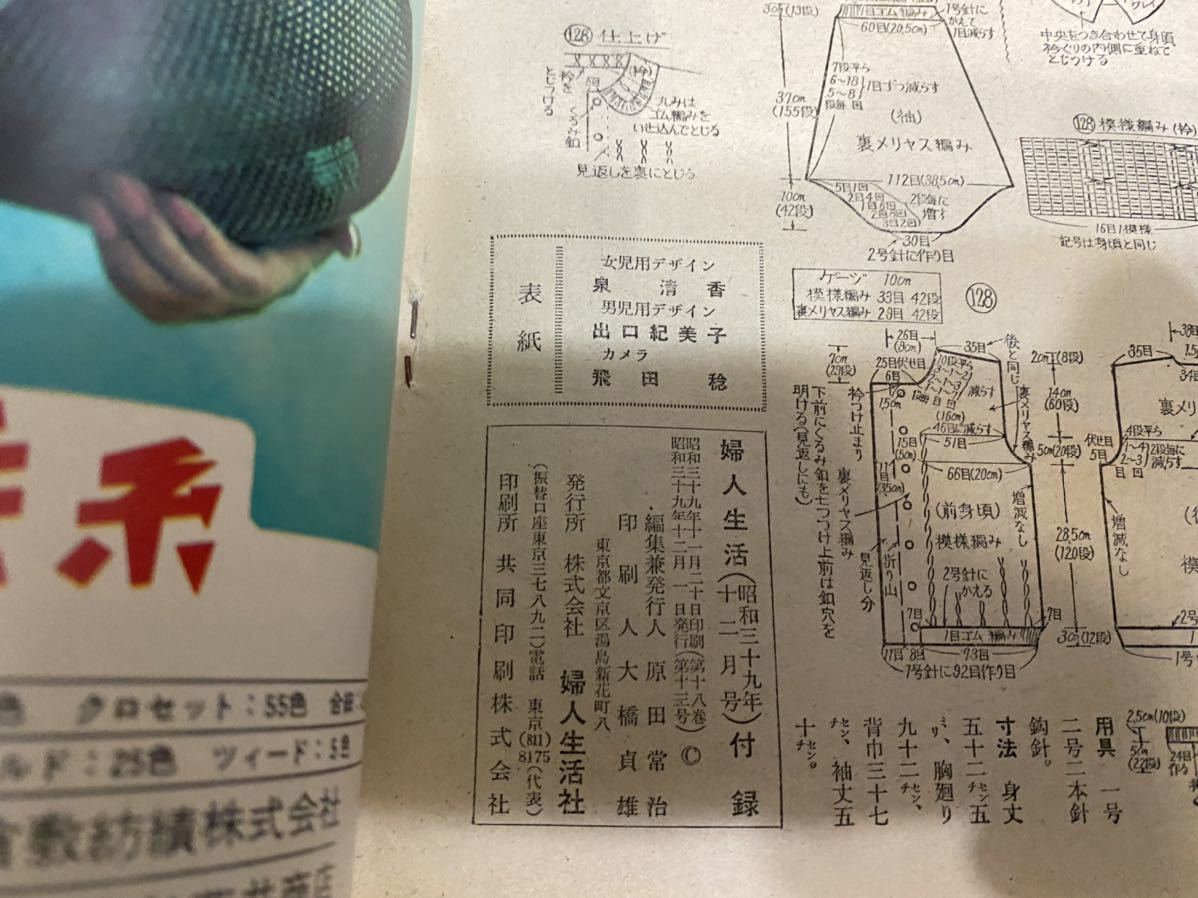 128 仕上げ
衿を
とじつける
(衿)
くるみ釦
丸みは
ゴム編みを
いせ込んでとじる
見返しを裏にとじる
3cm(13段)
1目ゴム編み
1号針に
かえて
1目減らす
60目(20.5cm)
7段平ら
6〜18
5〜8
段毎回
1目ずつ減らす
37cm
(155段)
(袖)
裏メリヤス編み
112目(38.5cm)
10cm
(42段)
5目1回
2目4回
1目6回
2目8回
3目2回
2段毎に
増す
30目
2号針に作り目
グレイ
中央をつき合わせて身頃
衿ぐりの内側に重ねて
とじつける
128 模様編み(衿)
16目1模様
記号は身頃と同じ
表紙
女児用デザイン
泉 清香
男児用デザイン
出口紀美子
カメラ
飛田 稔
ゲージ 10cm
模様編み 33目 42段
裏メリヤス編み 29目 42段
128
婦人生活(昭和三十九年十二月号)付録
昭和三十九年十一月二十日印刷(第十八巻)
昭和三十九年十二月一日発行(第十三号)
©
編集兼発行人 原田常治
印刷人 大橋貞雄
東京都文京区湯島新花町八
発行所 株式会社 婦人生活社
(振替口座東京三七八九二)電話 東京(811)8175(代表)
印刷所 共同印刷株式会社
26目
(9cm)
35目
後と同じ
2cm(8段)
7cm
(29段)
25目伏せ目
6目
10段平ら
減らす
(16cm)
裏メリヤス編み
14cm
(60段)
1.5cm
46目に減らす
51目
5cm(20段)
15目
(5cm)
66目(20cm)
11目
(35cm)
衿つけ止まり
下前にくるみ釦を七つつけ上前は釦穴を
明ける(見返しにも)
裏メリヤス編み
見返し分
折り山
(前身頃)
模様編み
増減なし
28.5cm
(120段)
2号針に
かえる
7目
7目
1目ゴム編み
3cm(12段)
11目 8目 73目
1号針に92目作り目
35目
伏せ目
5目
4段平ら
1〜4
2〜3
目回
2段毎に
減らす
増減なし
用具 一号
二号二本針
鈎針。
寸法 身丈
五十二㌢五
㍉、胸廻り
九十二㌢、
背巾三十七
㌢、袖丈五
十㌢。
2.5cm(10段)
5cm
(22段)
24目
作る
糸
クロセット:55色
ルド:25色 ツィード:5色
倉敷紡績株式会社